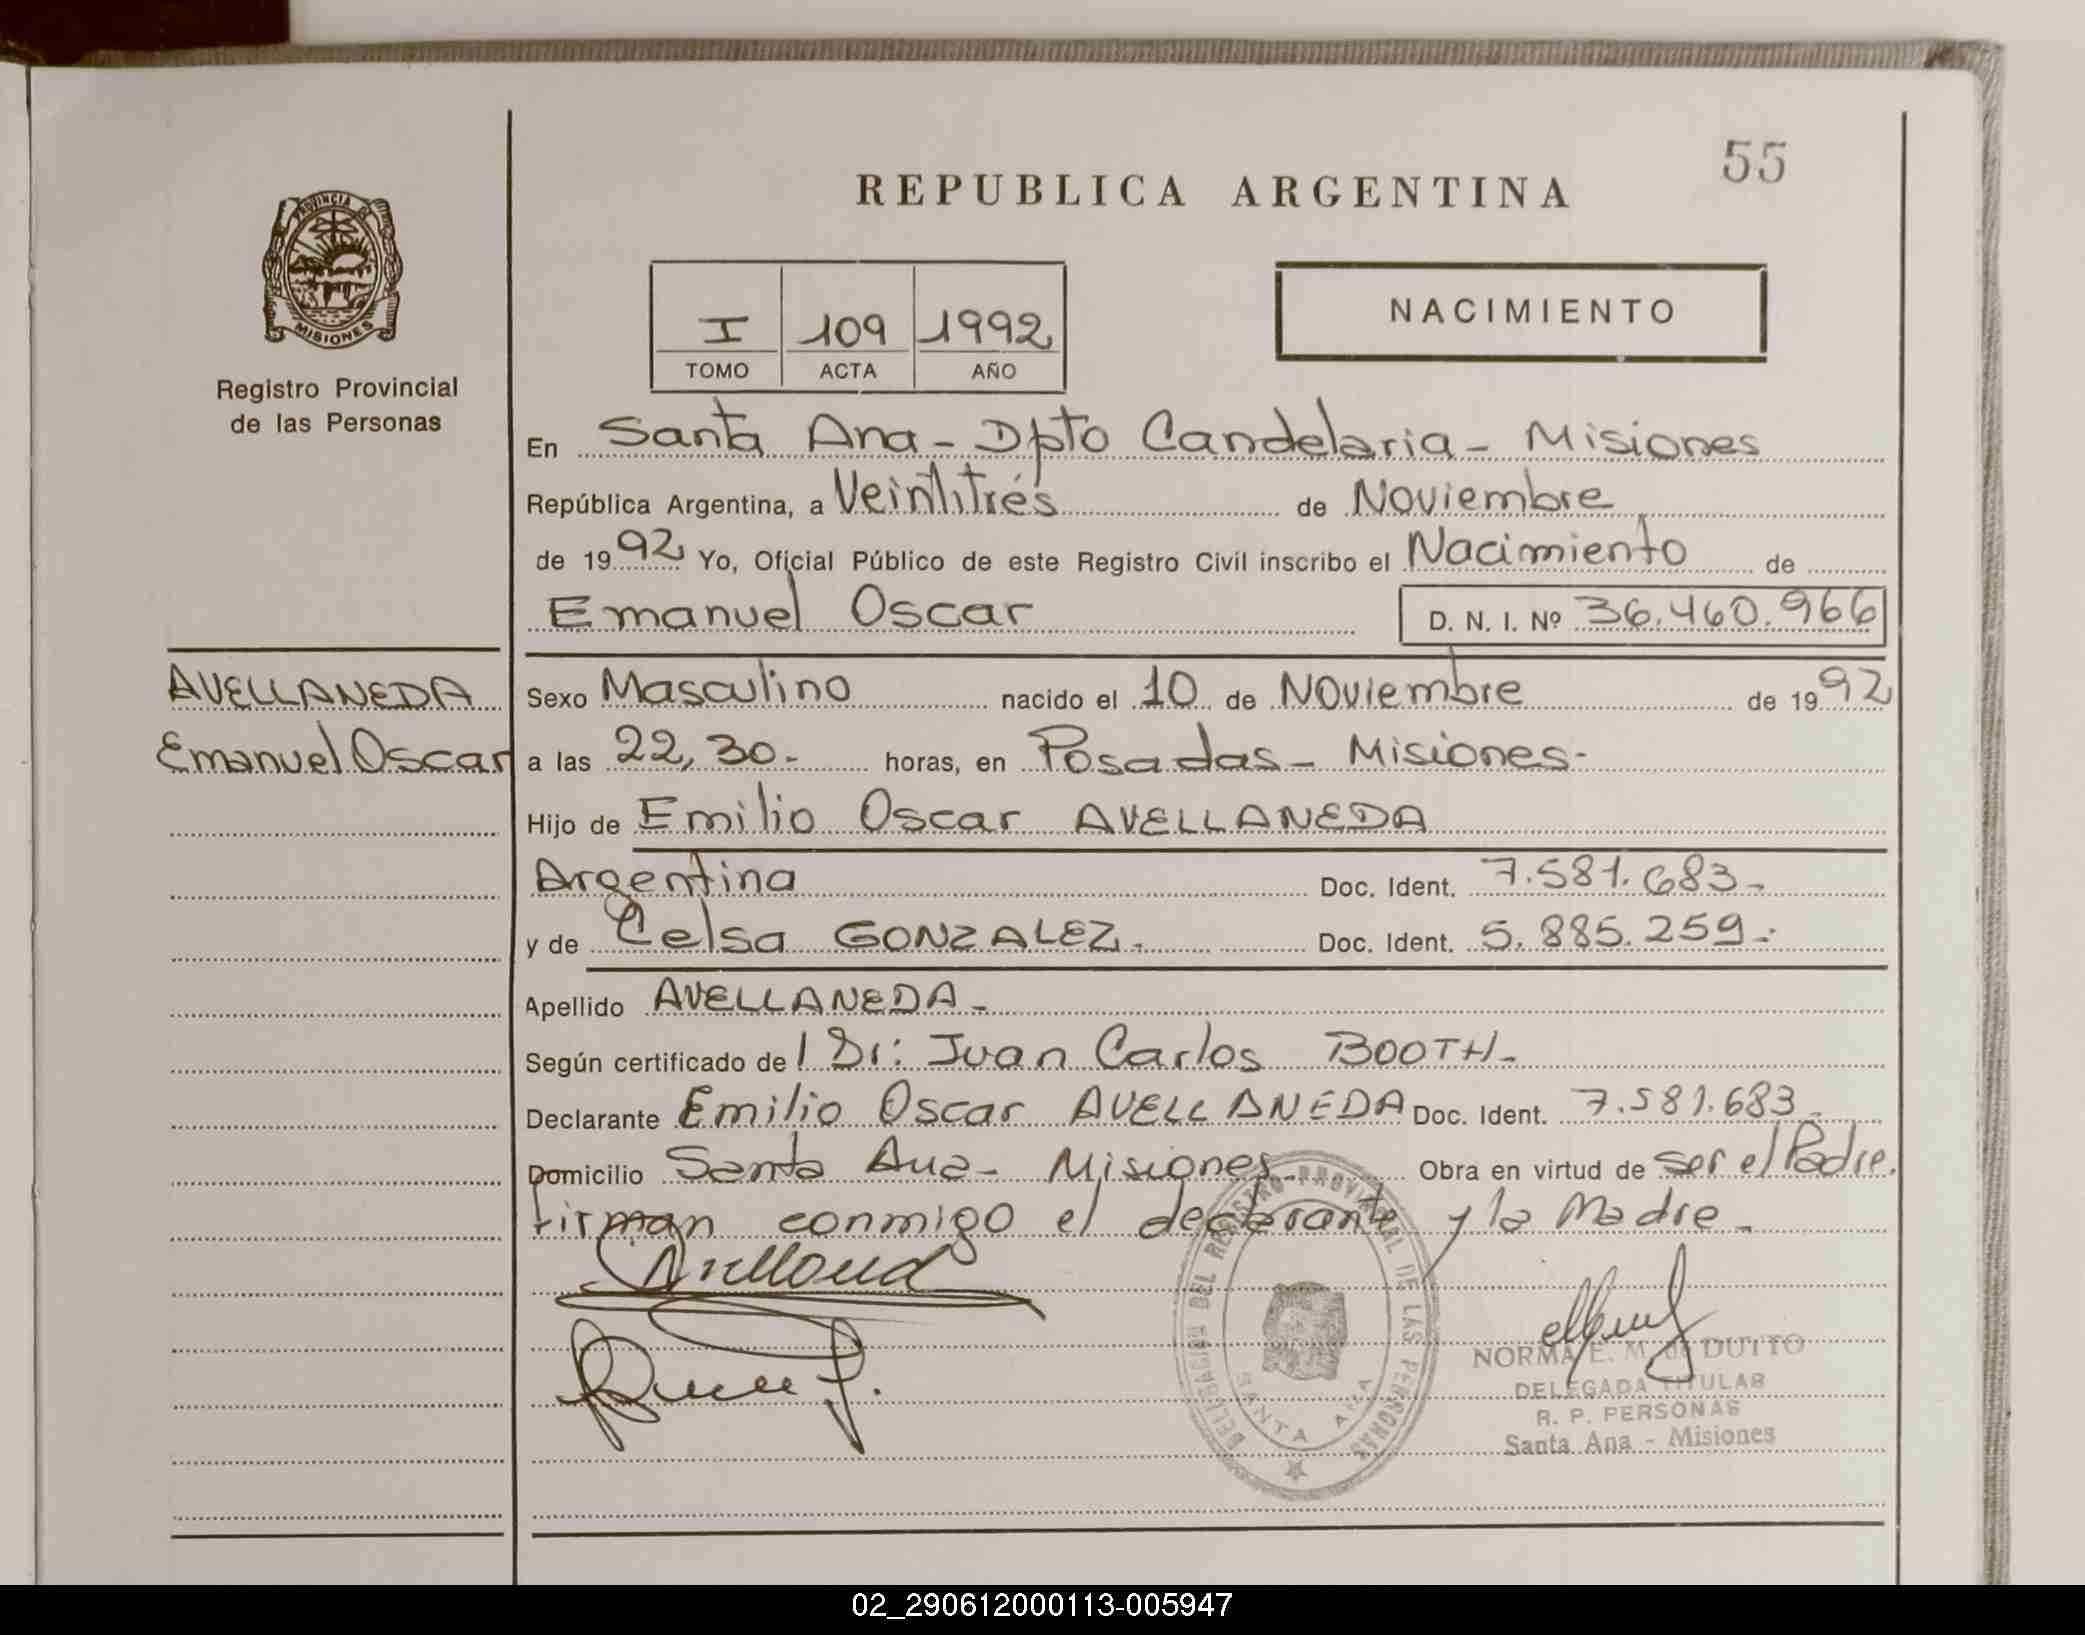 55
REPUBLICA ARGENTINA
PROVINCIA DE
MISIONES
Registro Provincial
de las Personas
I 109 1992
TOMO ACTA AÑO
NACIMIENTO
En Santa Ana - Dpto Candelaria - Misiones
República Argentina, a Veintitrés de Noviembre
de 1992 Yo, Oficial Público de este Registro Civil inscribo el Nacimiento de
Emanuel Oscar D. N. I. Nº 36.460.966
AVELLANEDA
Emanuel Oscar
Sexo Masculino nacido el 10 de Noviembre de 1992
a las 22,30.- horas, en Posadas - Misiones-
Hijo de Emilio Oscar AVELLANEDA
Argentina Doc. Ident. 7.581.683-
y de Celsa GONZALEZ.- Doc. Ident. 5.885.259-.
Apellido AVELLANEDA-
Según certificado de l Dr: Juan Carlos BOOTH-
Declarante Emilio Oscar AVELLANEDA Doc. Ident. 7.581.683-
Domicilio Santa Ana - Misiones Obra en virtud de ser el Padre.
firman conmigo el declarante y la Madre-
DELEGACION DEL REGISTRO PROVINCIAL DE LAS PERSONAS
SANTA ANA
NORMA E. M. de DUTTO
DELEGADA TITULAR
R. P. PERSONAS
Santa Ana - Misiones
02_290612000113-005947